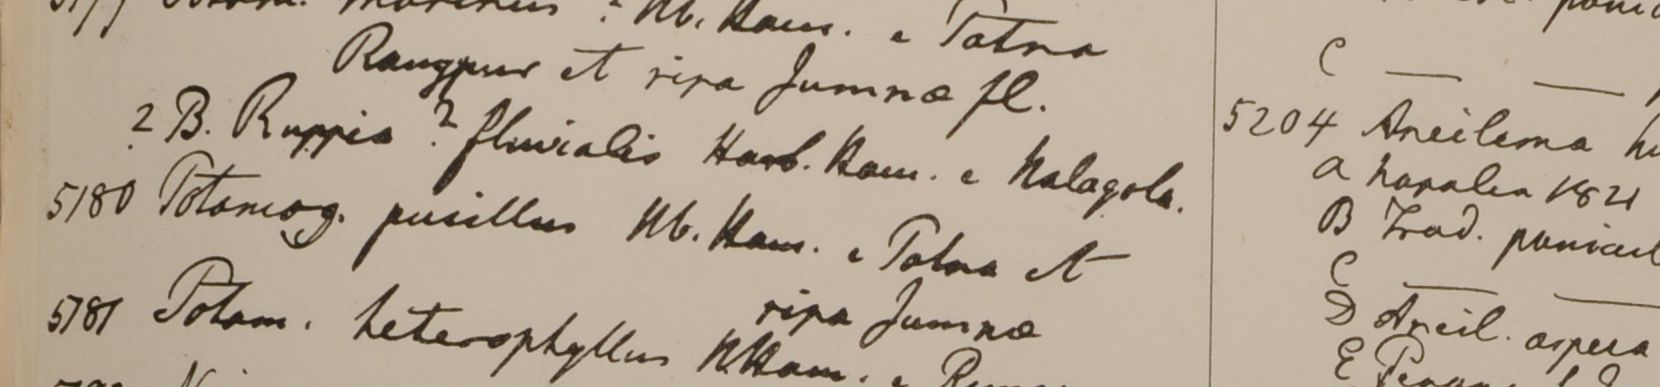 5179 Potam. marinus ? Hb. Ham. e Patna
Rangpur et ripa Jumnæ fl.
? B. Ruppia ? fluvialis Herb. Ham. e Nalagola.
5180 Potamog. pusillus Hb. Ham. e Patna et
ripa Jumnæ
5181 Potam. heterophyllus H. Ham. e
C — —
5204 Aneilema
a Napalia 1821
B Trad. panicul
C — —
D Aneil. aspera
E